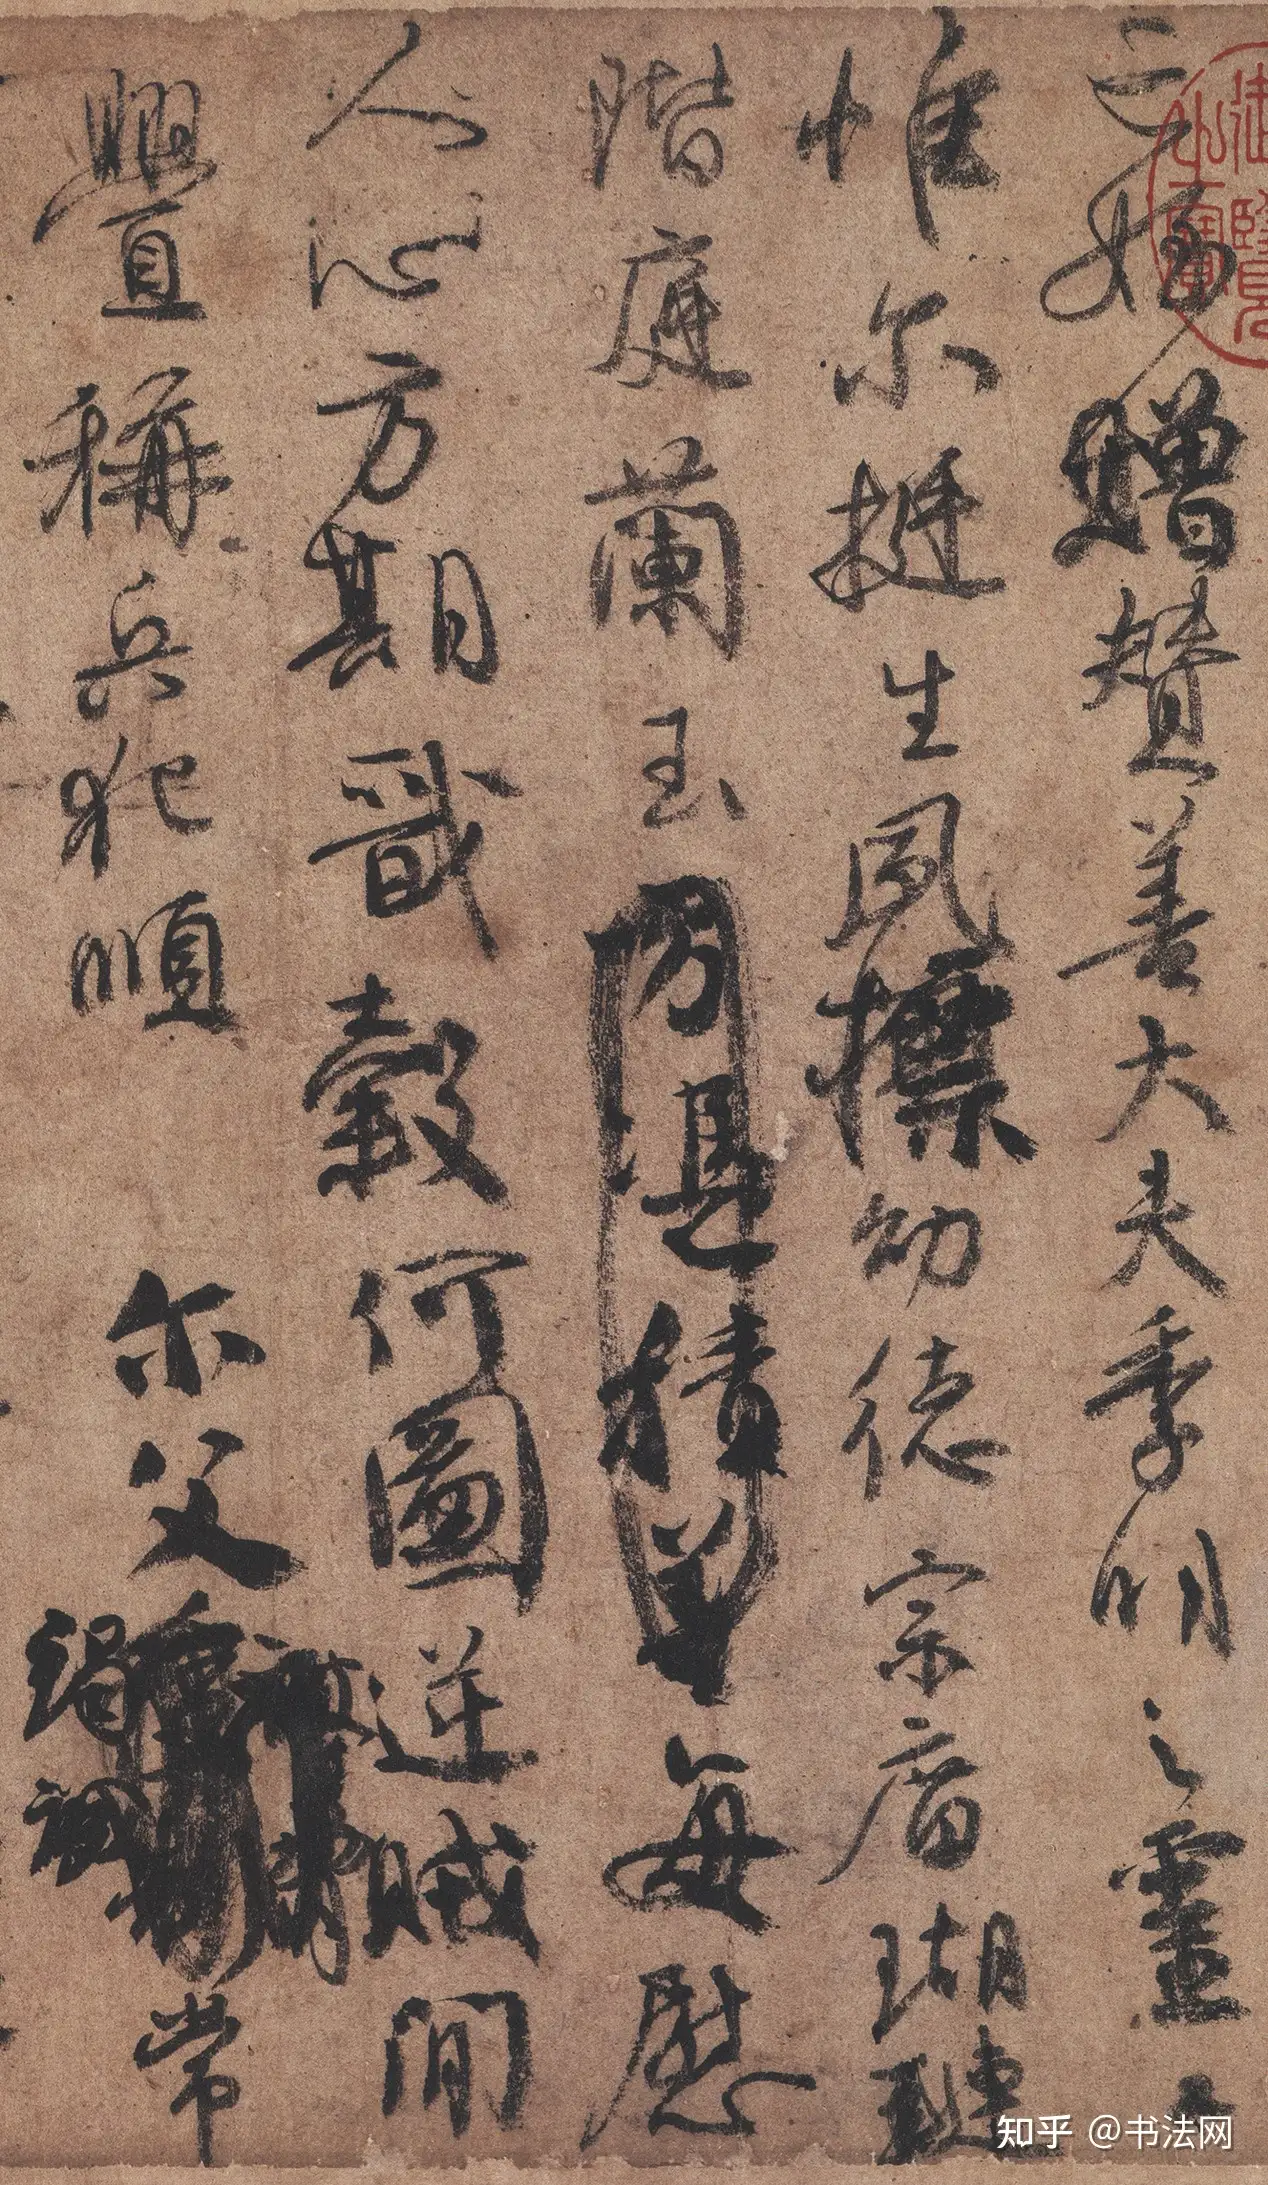 亡姪贈贊善大夫季明之靈曰
惟尔挺生夙標幼德宗廟瑚璉
階庭蘭玉方憑積善每慰
人心方期戩穀何圖逆賊閒
舋稱兵犯順尔父竭誠常
知乎 @书法网